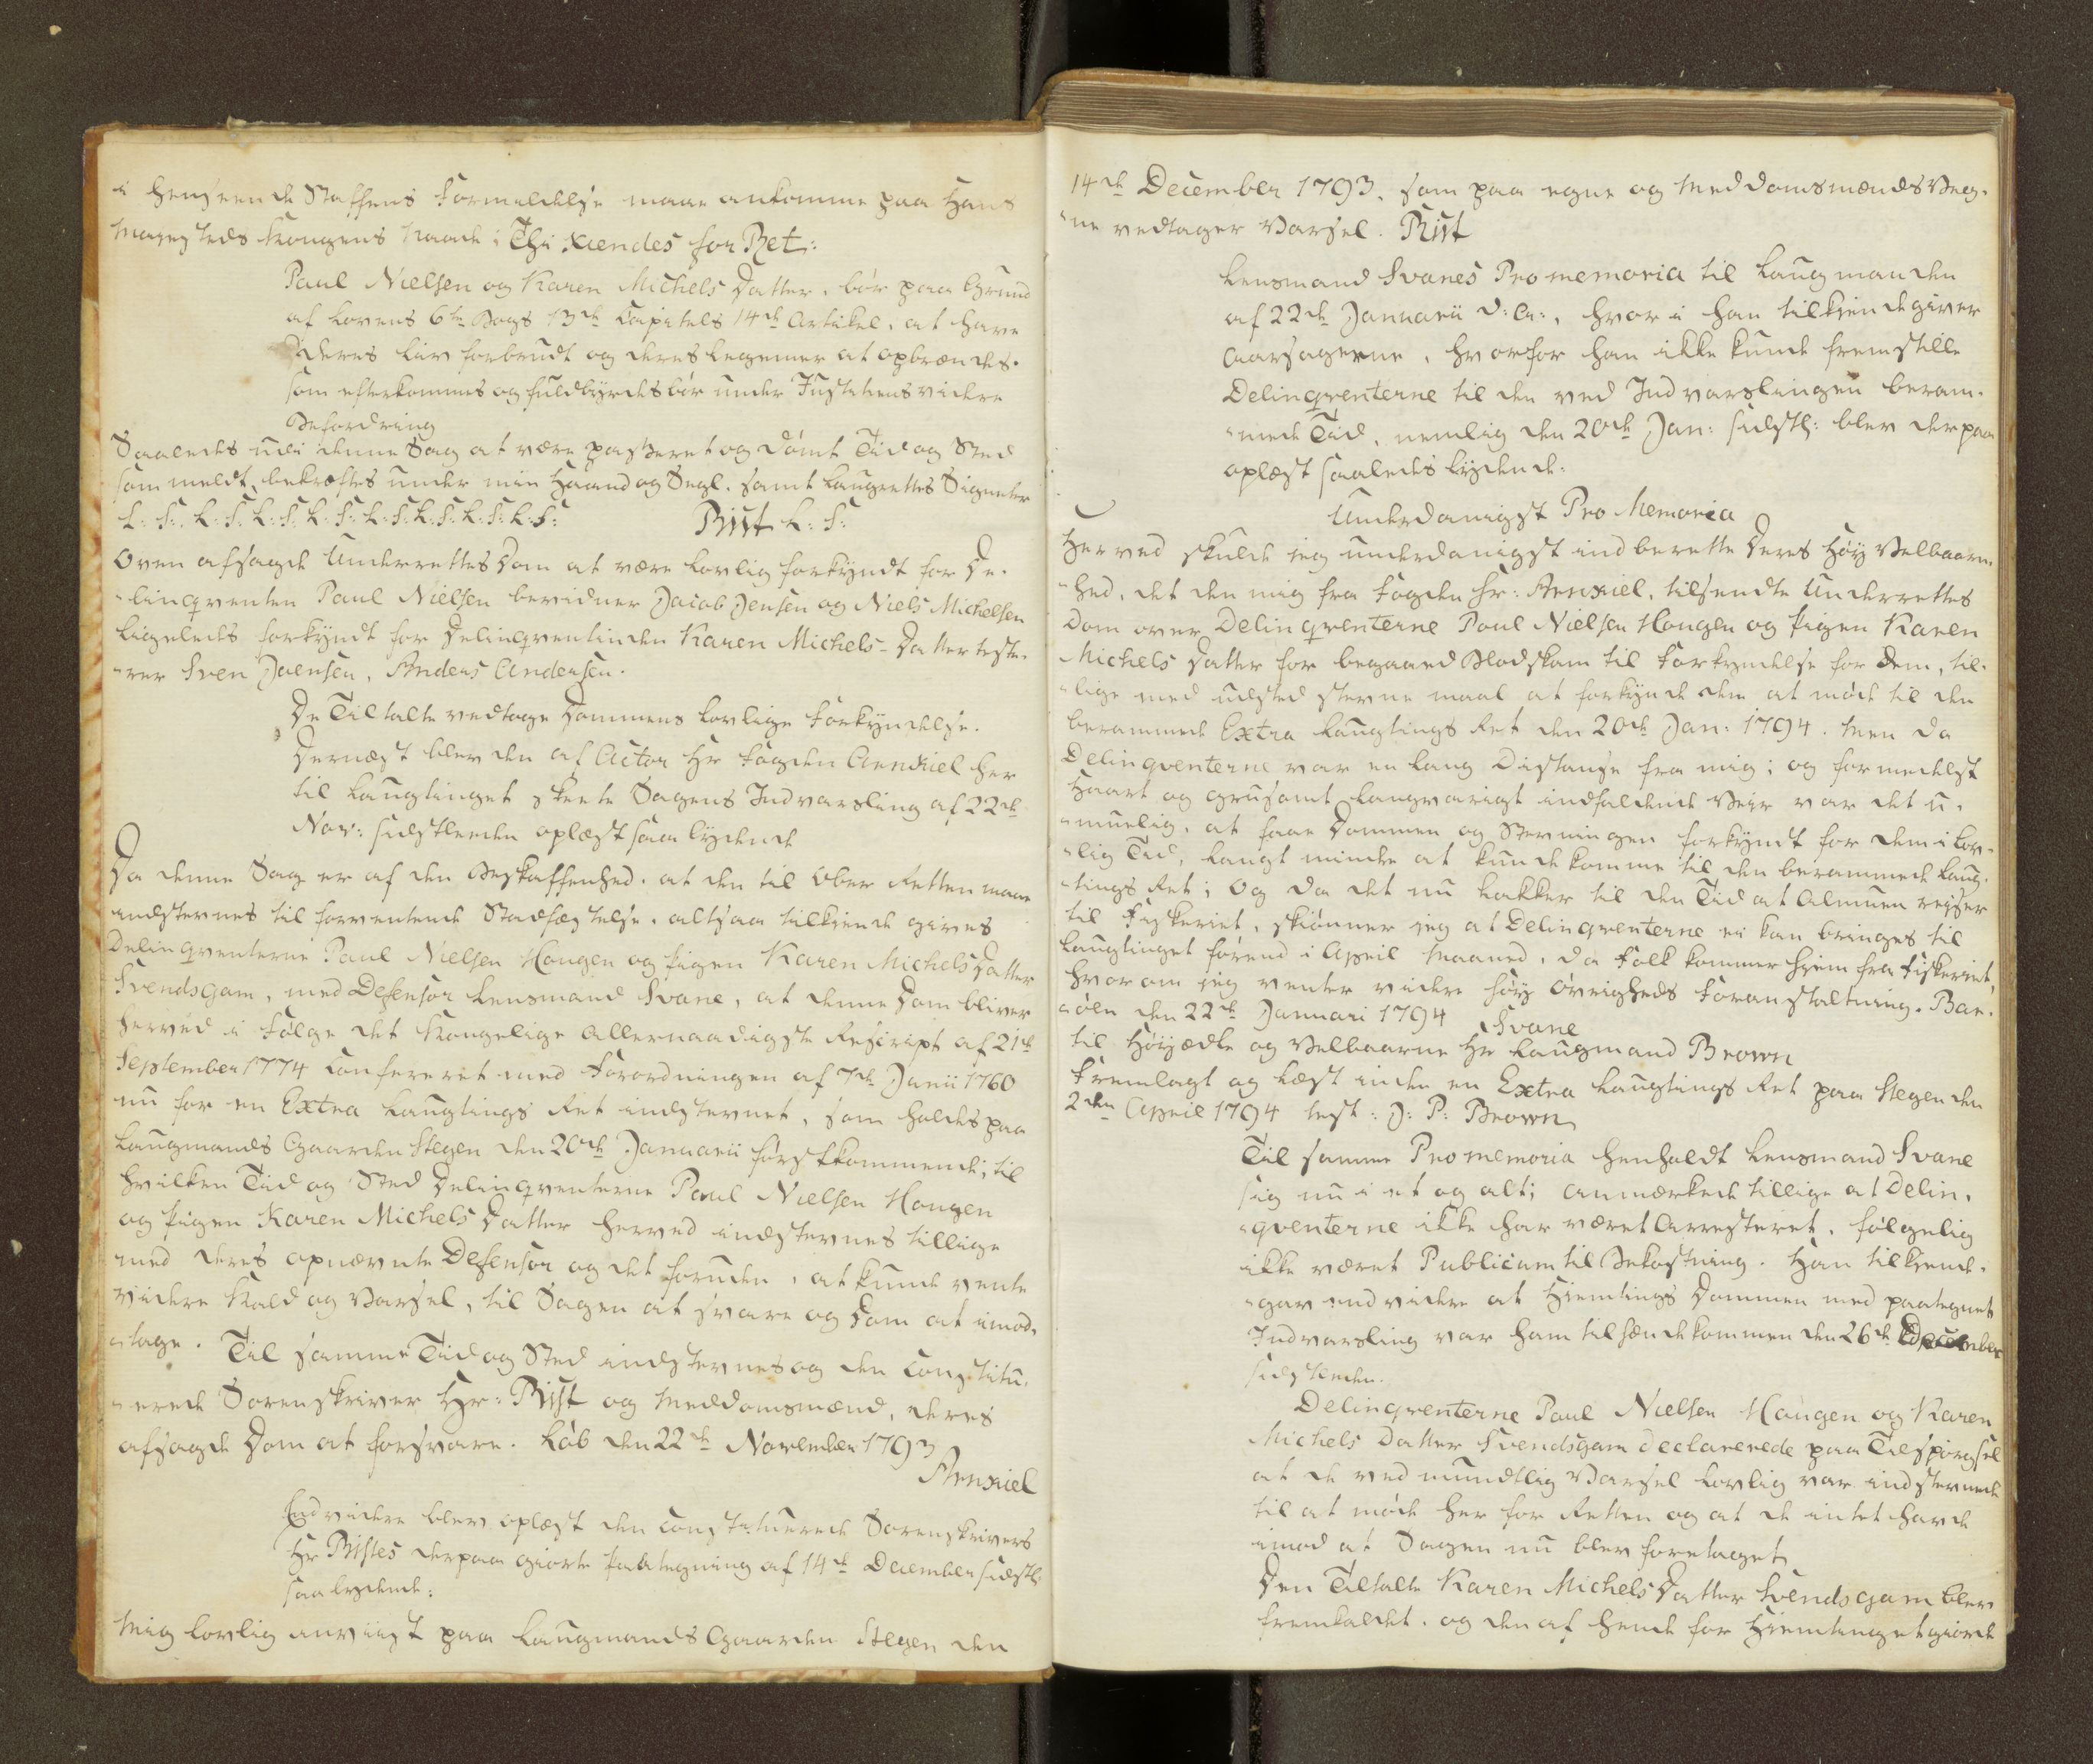 i henseende Straffens Formildelse maae ankomme paa Hans
Mayestets Kongens Naade; Thi kiendes for Ret:
Paul Nielsen og Karen Michels Datter, bør paa Grund
af Lovens 6te Bogs 13de Capitels 14de Artikel, at have
Deres Liv forbrudt og deres Legemer at opbrændes.
som efterkommes og fuldbyrdes bør under Justitiens videre
Befordring
Saaledes udi denne Sag at være passeret og dømt Tid og Sted
som meldt, bekræftes under min Haand og Segl. samt Laugrettes Signeter
L: S: L: S: L: S: L: S: L: S: L: S: L: S: L: S: Rist L: S:
Oven afsagde Underrettes Dom at være lovlig forkyndt for De-
linqventen Paul Nielsen bevidner Jacob Jensen og Niels Michelsen
Ligeledes forkyndt for Delinqventinden Karen Michels-Datter teste-
rer Sven Joensen, Anders Andersen.
De Tiltalte vedtoge Dommens lovlige Forkyndelse.
Dernæst blev den af Actor Hr Fogden Arnkiel her
til Laugtinget skeete Sagens Indvarsling af 22de
Nov: sidstleeden oplæst saa lydende
Da denne Sag er af den Beskaffenhed, at den til Ober Retten maae
indstevnes til forventende Stadfæstelse, altsaa tilkiende gives
Delinqventerne Paul Nielsen Hougen og Pigen Karen Michels Datter
Svendsgam, med Defensor Lensmand Svane, at denne Dom bliver
herved i Følge det Kongelige allernaadigste Rescript af 21de
September 1774 confereret med Forordningen af 7de Junii 1760
nu for en Extra Laugtings Ret indstevnet, som holdes paa
Laugmands Gaarden Stegen den 20de Januarii førstkommende; til
hvilken Tid og Sted Delinqventerne Paul Nielsen Hougen
og Pigen Karen Michels Datter herved indstevnes tillige
med deres opnævnte Defensor og det foruden, at kunde vente
videre Kald og Varsel, til Sagen at svare og Dom at imod-
tage. Til samme Tid og Sted indstevnes og den Constitu-
erede Sorenskriver Hr: Rist og Meddomsmænd, deres
afsagde Dom at forsvare. Løb den 22de November 1793
Arnkiel
Endvidere blev oplæst den Constituerede Sorenskrivers
Hr Ristes derpaa giorte Paategning af 14de December sidstl:
saa lydende:
Mig lovlig anviist paa Laugmands Gaarden Stegen den
14de December 1793. som paa egne og Meddomsmænds Veg-
ne vedtager Varsel. Rist
Lensmand Svanes Promemoria til Laugmanden
af 22de Januarii d: A:, hvori han tilkiendegiver
Aarsagerne, hvorfor han ikke kunde fremstille
Delinqventerne til den ved Indvarslingen beram-
mede Tid, nemlig den 20de Jan: sidstl: blev derpaa
oplæst saaledes lydende:
Underdanigst Pro Memoria
Herved skulde jeg underdanigst indberette Deres Høy Velbaaren-
hed, det den mig fra Fogden Hr: Arnkiel, tilsendte Underrettes
Dom over Delinqventerne Paul Nielsen Hougen og Pigen Karen
Michels Datter for begaaed Blodskam til Forkyndelse for dem, til-
lige med udsted stevne maal at forkynde dem at møde til den
berammede Extra Laugtings Ret den 20de Jan: 1794. Men da
Delinqventerne var en lang Distanse fra mig; og formedelst
Haart og grusomt langvarigt indfaldende Veir var det u-
muelig, at faae Dommen og Stevningen forkyndt for dem i lov-
lig Tid, langt mindre at kunde komme til den berammede Laug-
tings Ret; Og da det nu lakker til den Tid at Almuen reiser
til Fiskeriet, skiønner jeg at Delinqventerne ei kan bringes til
Laugtinget førend i April Maaned, da Folk kommer hjem fra Fiskeriet,
hvorom jeg venter videre høy Øvrigheds Foranstaltning. Bar-
øen den 22de Januari 1794 Svane
til Høyædle og Velbaarne Hr Laugmand Brown
Fremlagt og læst inden en Extra Laugtings Ret paa Stegen den
2den April 1794 test: J: P: Brown
Til samme Promemoria henholdt Lensmand Svane
sig nu i et og alt; anmærkede tillige at Delin-
qventerne ikke har været Arresteret, følgelig
ikke været Publicum til Bekostning. Han tilkiende-
gav endvidere at Hiemtings Dommen med paategnet
Indvarsling var ham tilhænde kommen den 26de December
sidstleeden.
Delinqventerne Paul Nielsen Hougen og Karen
Michels Datter Svendsgam declarerede paa Tilspørgsel
at de ved mundtlig Varsel lovlig var indstevnede
til at møde her for Retten og at de intet havde
imod at Sagen nu blev foretaget
Den Tiltalte Karen Michels Datter Svendsgam blev
fremkaldet, og den af hende for Hiemtinget giorde